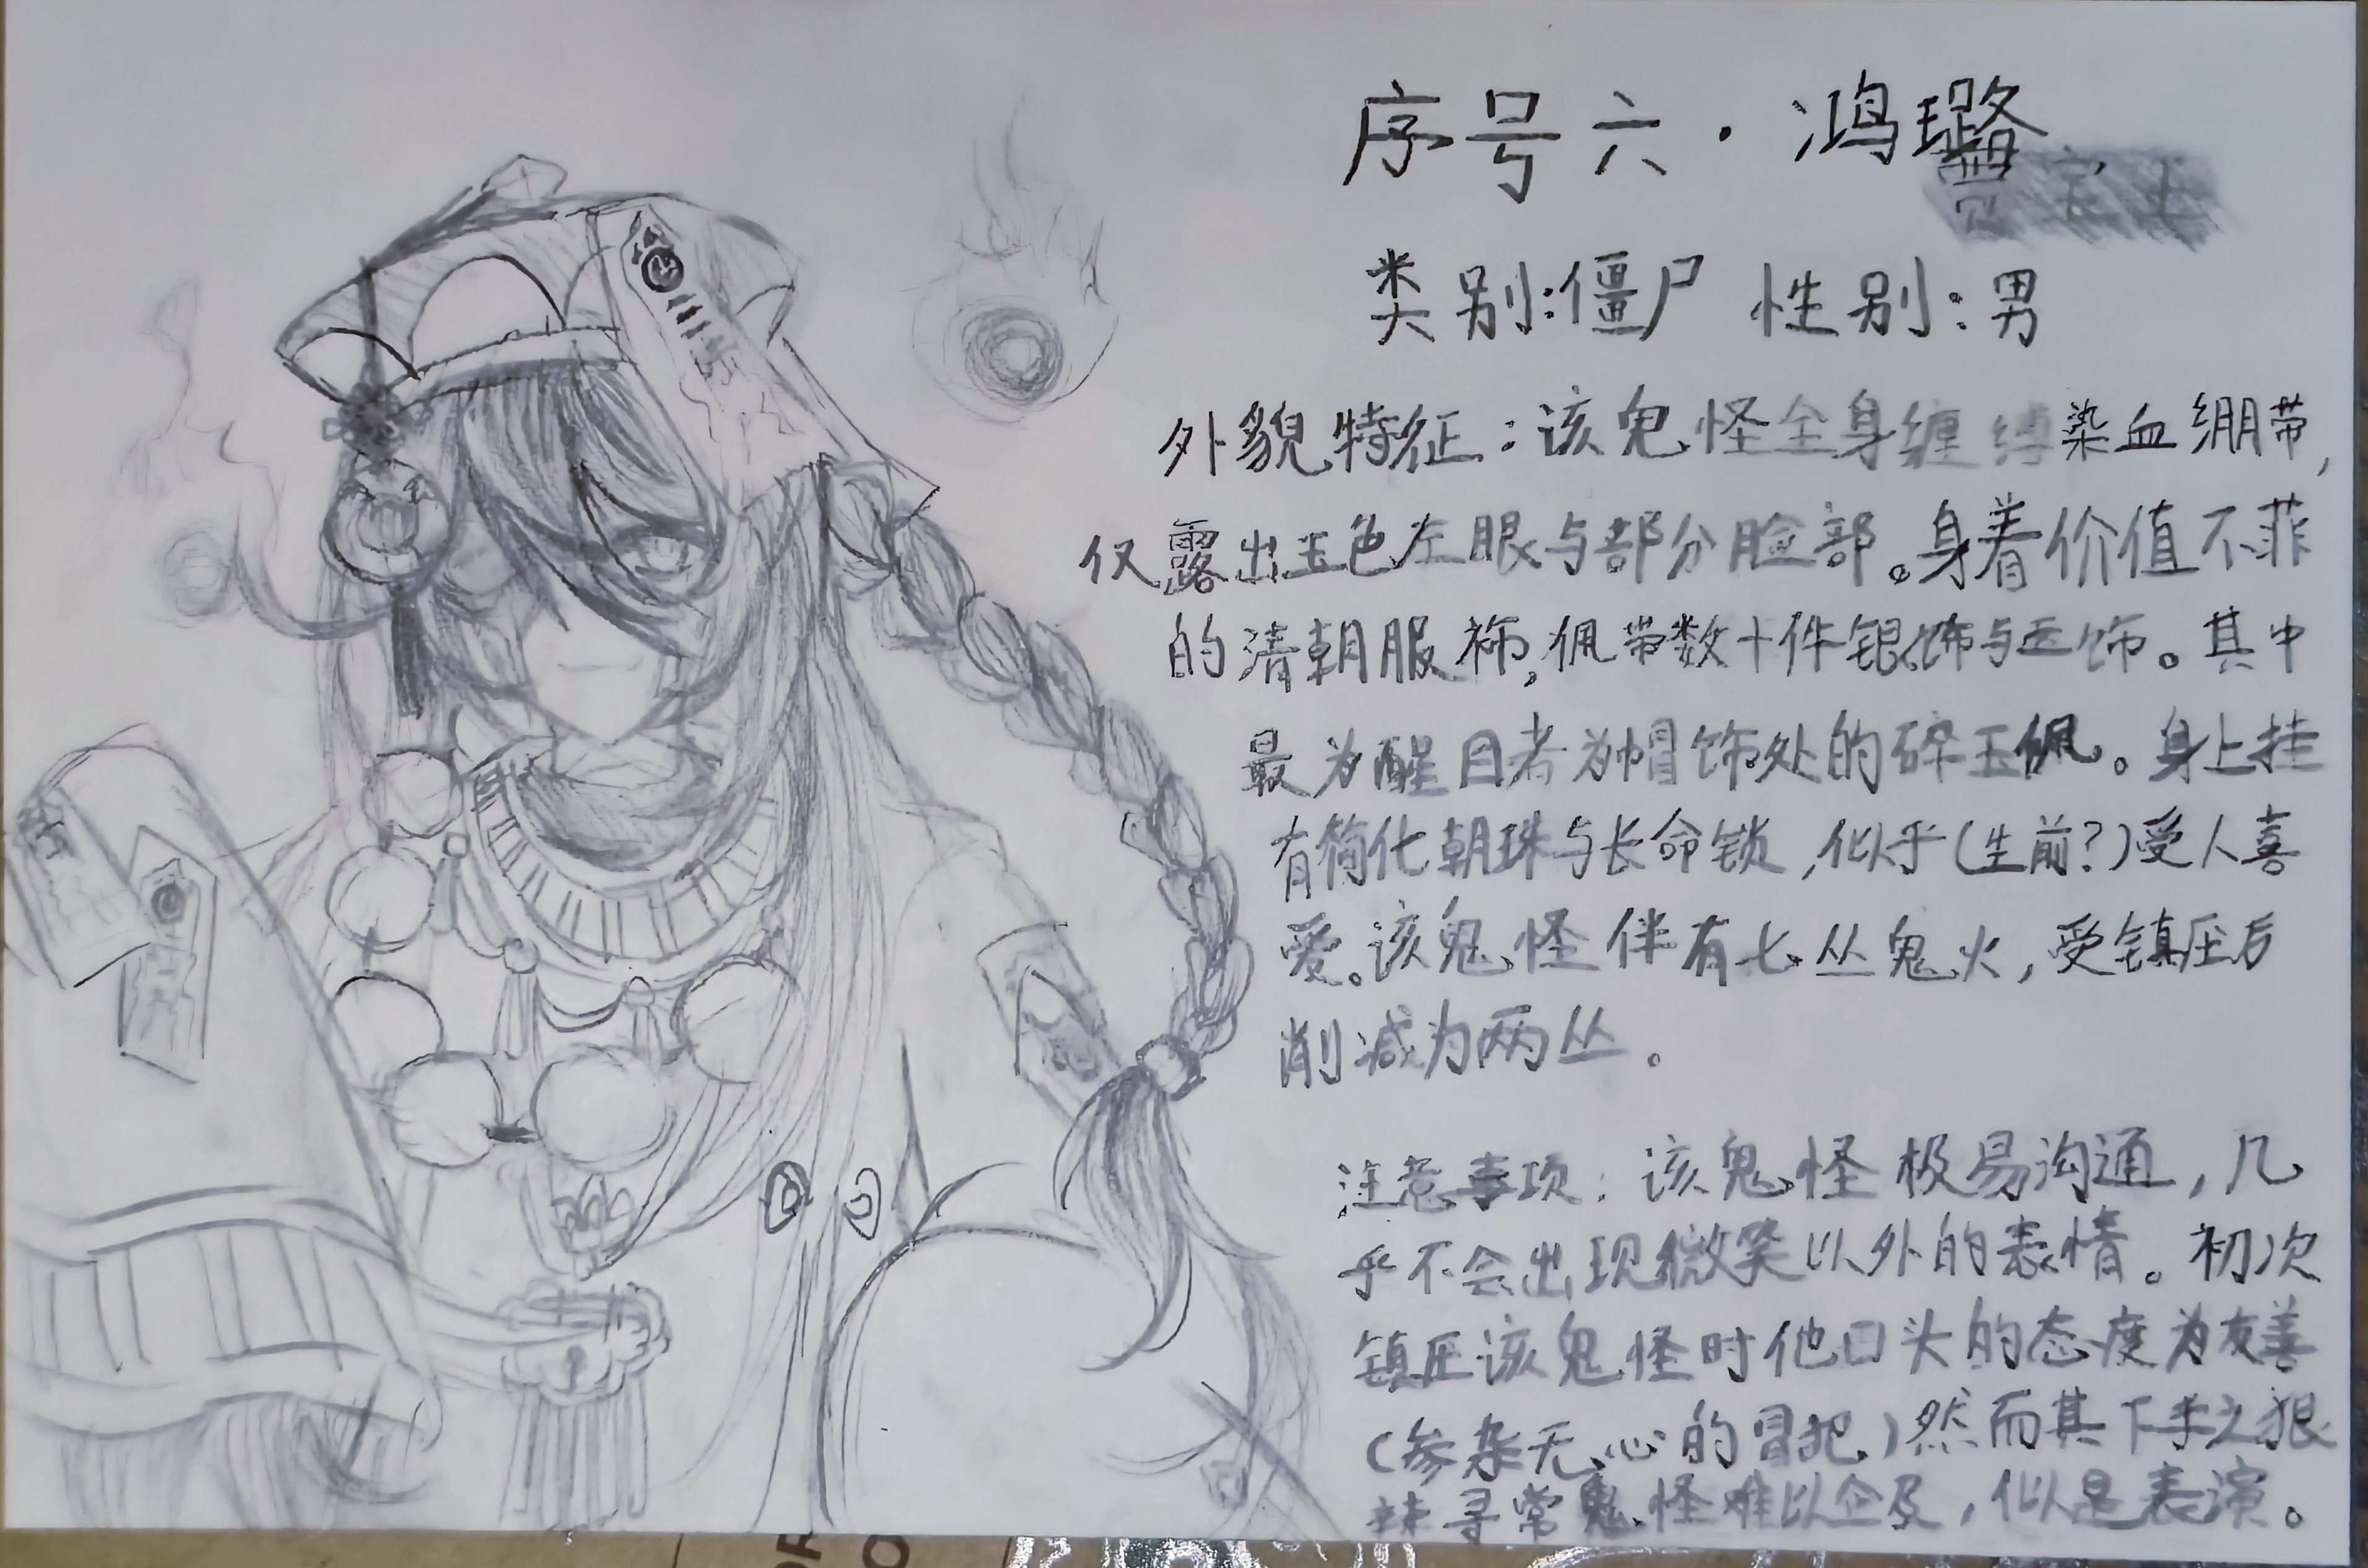 序号六·鸿璐
类别:僵尸 性别:男
外貌特征:该鬼怪全身缠缚染血绷带,
仅露出玉色左眼与部分脸部。身着价值不菲
的清朝服袮,佩带数十件银饰与玉饰。其中
最为醒目者为帽饰处的碎玉佩。身上挂
有简化朝珠与长命锁,似乎(生前?)受人喜
爱。该鬼怪伴有七丛鬼火,受镇压后
削减为两丛。
注意事项:该鬼怪极易沟通,几
乎不会出现微笑以外的表情。初次
镇压该鬼怪时他口头的态度为友善
(参杂无心的冒犯)然而其下手之狠
辣寻常鬼怪难以企及,似是表演。